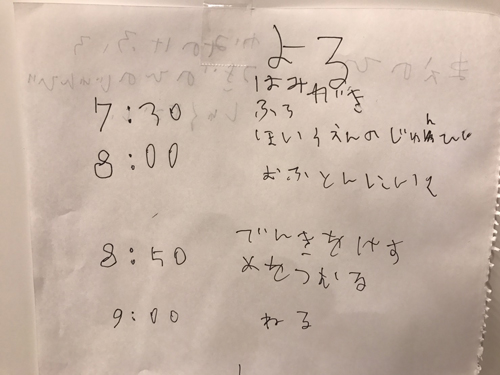 よる
はみがき
7:30 ふろ
ほいくえんのじゅんび
8:00 おふとんにいく
8:50 でんきをけす
めをつむる
9:00 ねる